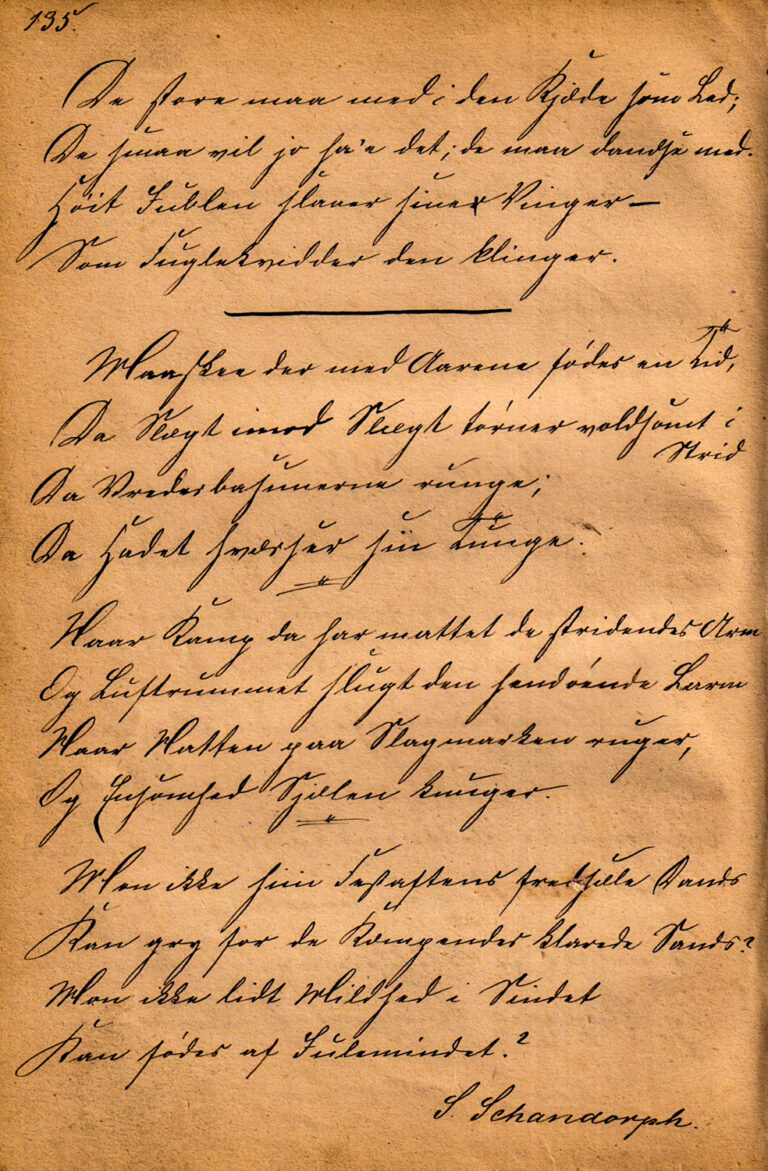 135.
De store maa med i den Kjæde som Led;
De smaa vil jo ha'e det; de maa dandse med.
Høit Jublen slaaer sine Vinger —
Som Fuglekvidder den klinger.
Maaskee der med Aarene fødes en Tid,
Da Slægt imod Slægt tørner voldsomt i
Strid
Da Vredesbasunerne runge;
Da Hadet hvæsser sin Tunge.
Naar Kamp da har mattet de stridendes Arm
Og Luftrummet slugt den hendøende Larm
Naar Natten paa Slagmarken ruger,
Og Ensomhed Sjælen knuger.
Mon ikke hiin Festaftens fredsæle Dands
Kan gry for de Kæmpendes klarede Sands?
Mon ikke lidt Mildhed i Sindet
Kan fødes af Julemindet?
S. Schandorph.